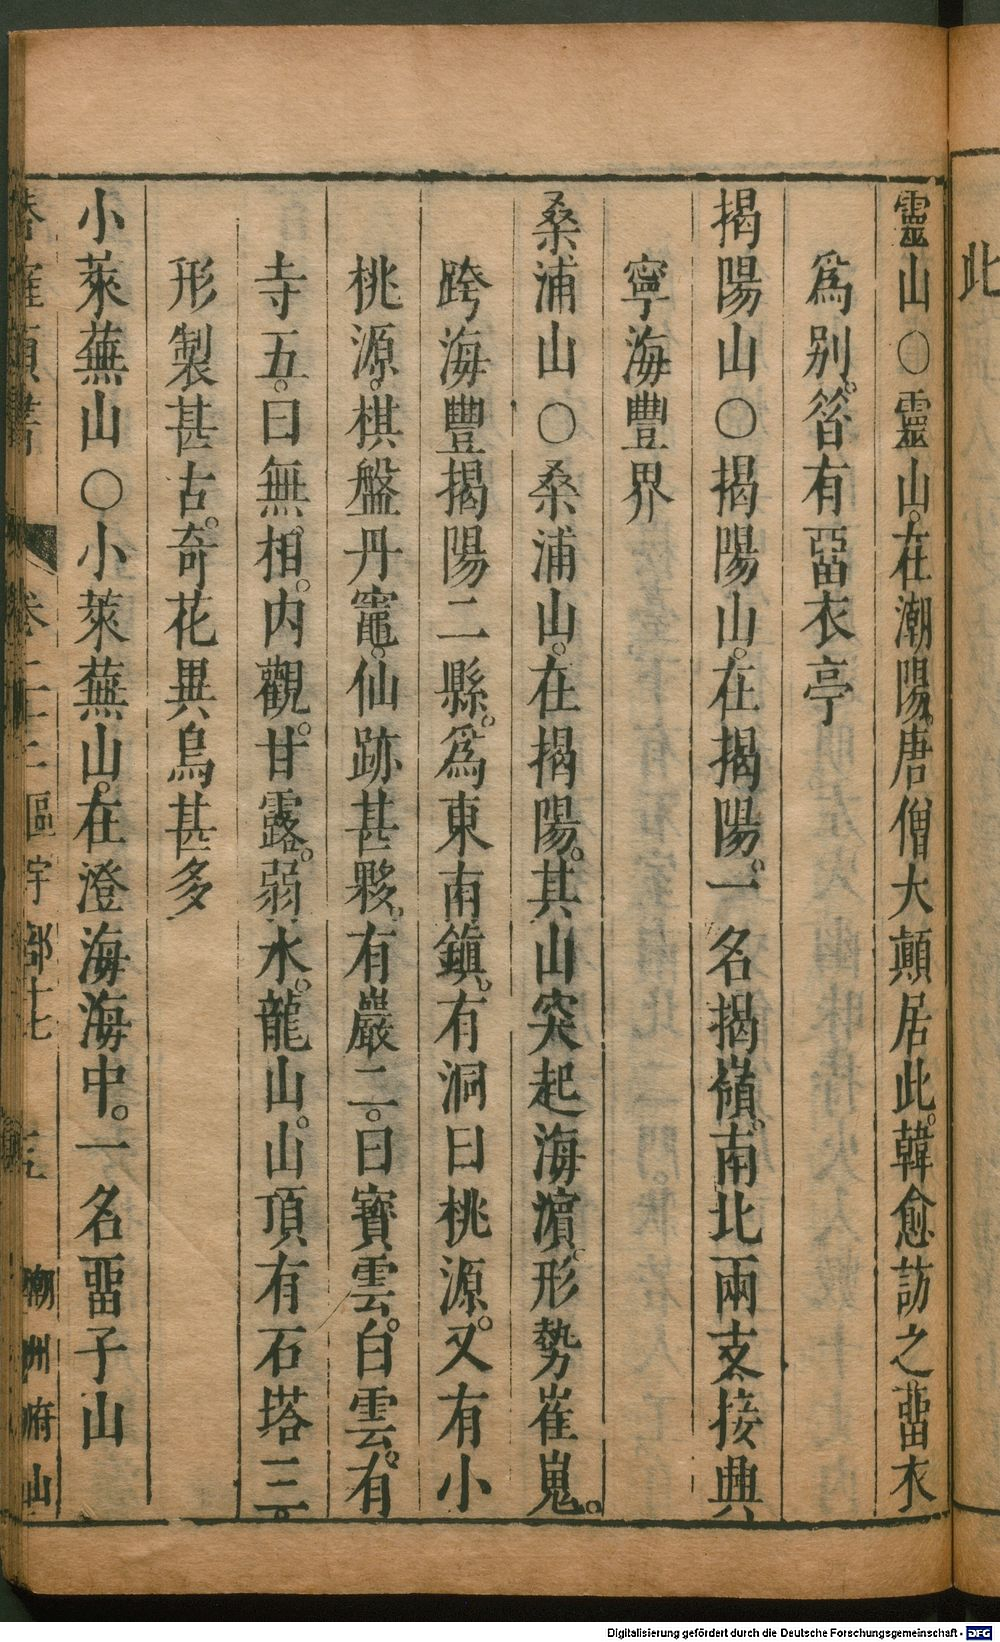 靈山○靈山。在潮陽。唐僧大顛居此。韓愈訪之畱衣
爲別。答有畱衣亭
揭陽山○揭陽山。在揭陽。一名揭嶺。南北兩支接興
寧海豐界
桑浦山○桑浦山。在揭陽。其山突起海濵。形勢崔嵬。
跨海豐揭陽二縣。爲東南鎮。有洞曰桃源。又有小
桃源。棋盤丹竈。仙跡甚夥。有巖二。曰寶雲。白雲。有
寺五。曰無相。内觀。甘露。弱水。龍山。山頂有石塔三。
形製甚古。奇花異鳥甚多
小萊蕪山○小萊蕪山。在澄海海中。一名畱子山
卷二十二區宇部十七 潮州府山
此
Digitalisierung gefördert durch die Deutsche Forschungsgemeinschaft - DFG